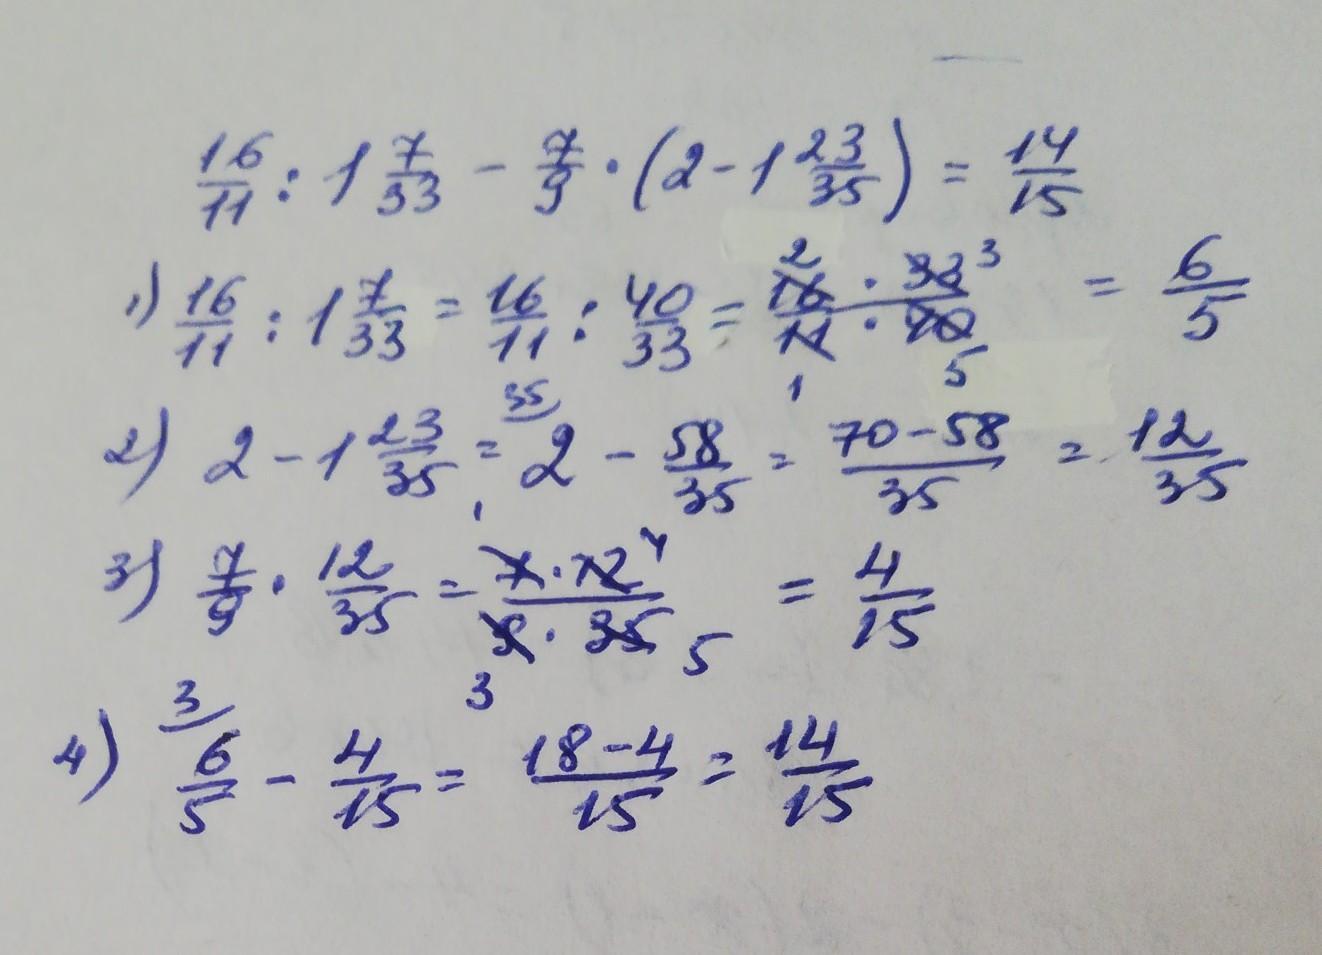 16/11 : 1 7/33 - 7/9 · (2 - 1 23/35) = 14/15
1) 16/11 : 1 7/33 = 16/11 : 40/33 = 16 2 · 33 3 / 11 1 · 40 5 = 6/5
2) 2 - 1 23/35 = 35 2 - 58/35 = 70-58/35 = 12/35
3) 7/9 · 12/35 = 7 1 · 12 4 / 9 3 · 35 5 = 4/15
4) 3 6/5 - 4/15 = 18-4/15 = 14/15